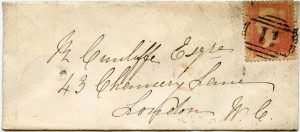 Cunliffe Esqre
43 Chancery Lane
London W.C.